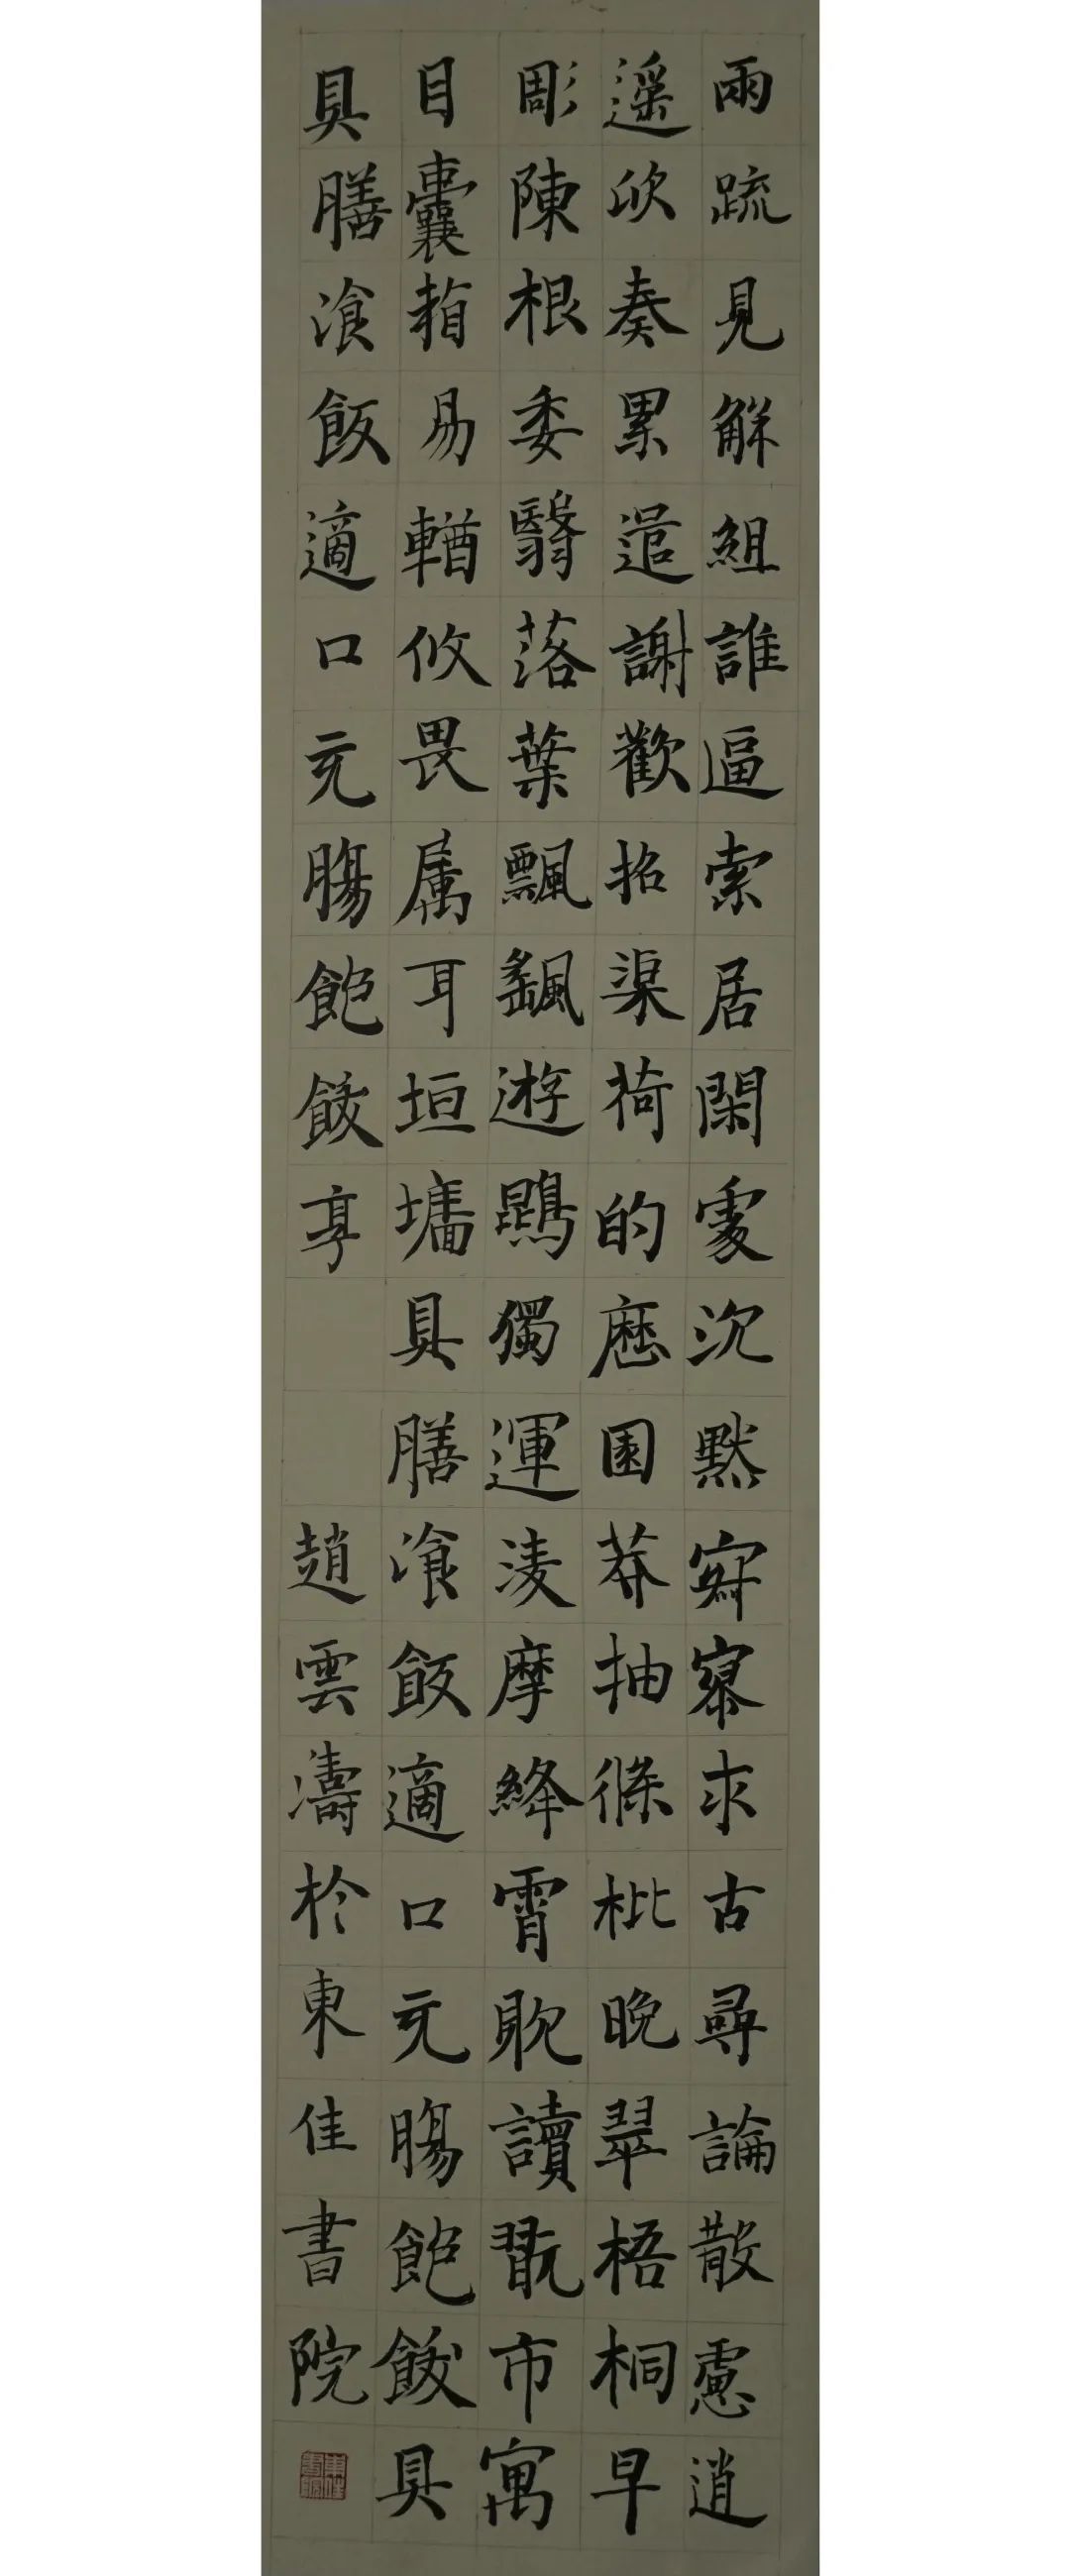 兩疏見解組誰逼索居閑處沉默寂寥求古尋論散慮逍
遥欣奏累遣謝歡招渠荷的歷園莽抽條枇晚翠梧桐早
彫陳根委翳落葉飄颻遊鵾獨運凌摩絳霄耽讀翫市寓
目囊箱易輶攸畏属耳垣墻具膳飡飯適口充腸飽飫具
具膳飡飯適口充腸飽飫享
趙雲濤於東佳書院